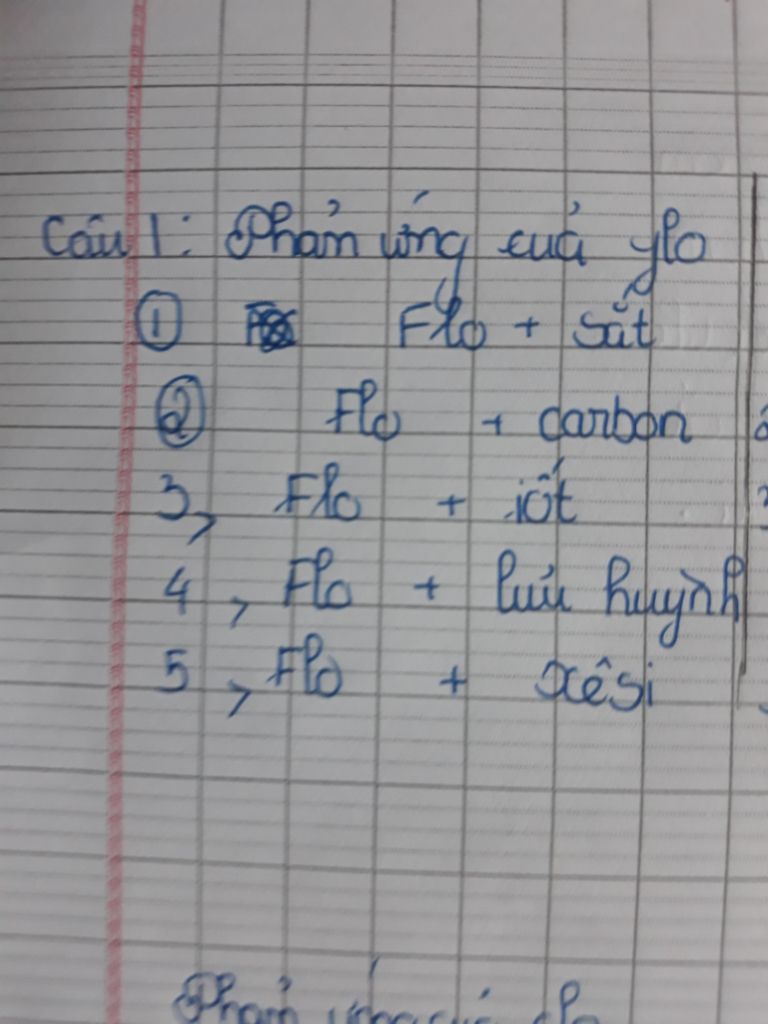 Câu 1: Phản ứng của flo
① Flo + sắt
② Flo + carbon
3, Flo + iốt
4, Flo + lưu huỳnh
5, Flo + xêsi
Phản ứng